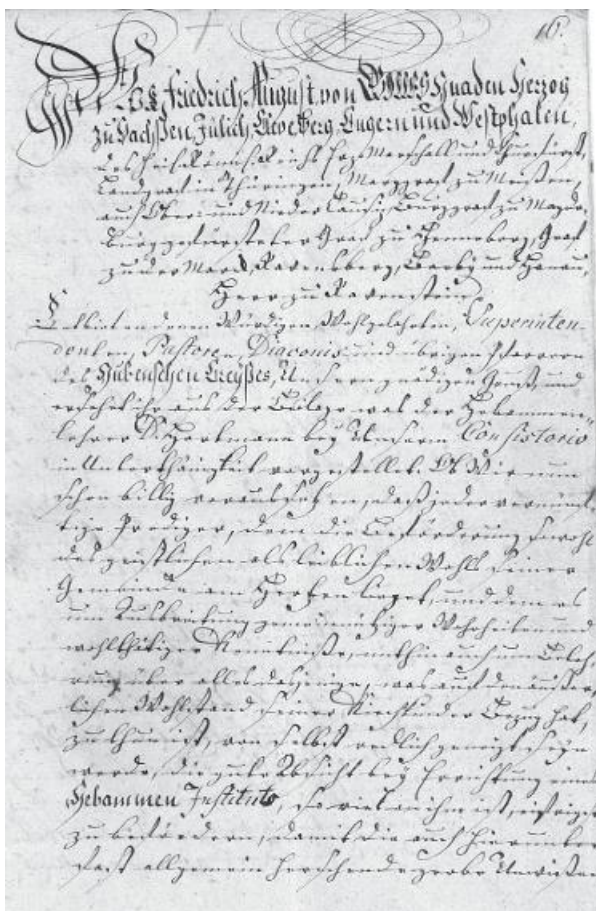 16.
Friedrich August, von Gottes Gnaden Herzog
zu Sachßen, Jülich, Cleve, Berg, Engern und Westphalen,
des heil. Römischen Reichs Erz-Marschall und Churfürst,
Landgraf in Thüringen, Marggraf zu Meißen,
auch Ober- und Nieder Lausiz, Burggraf zu Magde-
burg, gefürsteter Graf zu Henneberg, Graf
zu der Marck, Ravensberg, Barby und Hanau,
Herr zu Ravenstein
Entbieten denen Würdigen Wohlgelahrten, Superinten-
denten, Pastoren, Diaconis und übrigen Pfarrern
des Gubenschen Creyßes, Unsern gnädigen Gruß, und
ersehet ihr aus der Beilage was der Hebammen-
lehrer D. Hartmann bey Unserm Consistorio
in Unterthänigkeit vorgestellet. Ob Wir nun
schon billig voraussetzen, daß jeder vernünf-
tige Prediger, dem die Beförderung sowohl
des geistlichen als leiblichen Wohls seiner
Gemeinde am Herzen lieget, und dem es
um Ausbreitung gemeinnütziger Wahrheiten und
wohlthätiger Kenntniße, mithin auch um Beleh-
rung über alles dasjenige, was auf den äußer-
lichen Wohlstand seiner Kirchkinder Bezug hat,
zu thun ist, von selbst redlich geneigt seyn
werde, die gute Absicht bey Errichtung eines
Hebammen Instituts, so viel an ihm ist, eifrigst
zu befördern, damit die auch hierunter
fast allgemein herrschende grobe Unwißen